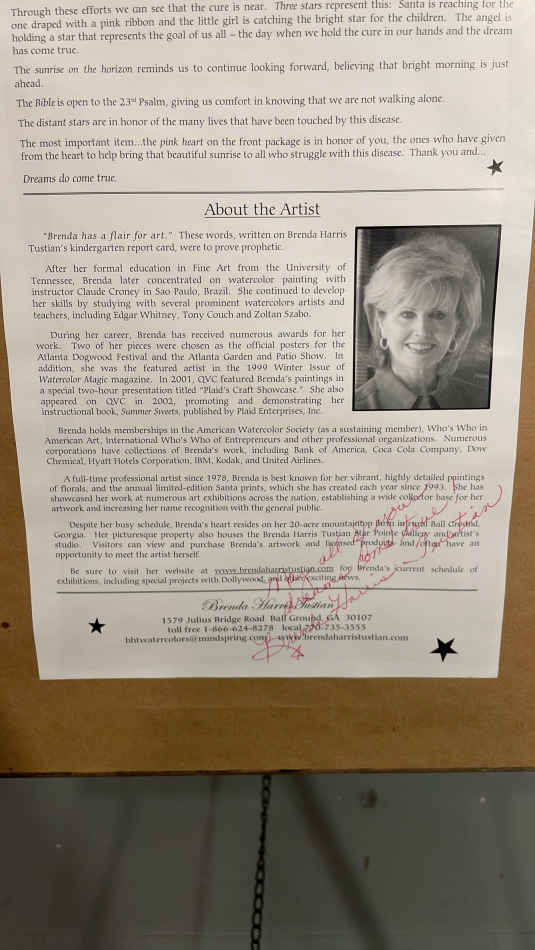 Through these efforts we can see that the cure is near. Three stars represent this: Santa is reaching for the
one draped with a pink ribbon and the little girl is catching the bright star for the children. The angel is
holding a star that represents the goal of us all – the day when we hold the cure in our hands and the dream
has come true.
The sunrise on the horizon reminds us to continue looking forward, believing that bright morning is just
ahead.
The Bible is open to the 23rd Psalm, giving us comfort in knowing that we are not walking alone.
The distant stars are in honor of the many lives that have been touched by this disease.
The most important item...the pink heart on the front package is in honor of you, the ones who have given
from the heart to help bring that beautiful sunrise to all who struggle with this disease. Thank you and...
Dreams do come true.
About the Artist
"Brenda has a flair for art." These words, written on Brenda Harris
Tustian's kindergarten report card, were to prove prophetic.
After her formal education in Fine Art from the University of
Tennessee, Brenda later concentrated on watercolor painting with
instructor Claude Croney in Sao Paulo, Brazil. She continued to develop
her skills by studying with several prominent watercolors artists and
teachers, including Edgar Whitney, Tony Couch and Zoltan Szabo.
During her career, Brenda has received numerous awards for her
work. Two of her pieces were chosen as the official posters for the
Atlanta Dogwood Festival and the Atlanta Garden and Patio Show. In
addition, she was the featured artist in the 1999 Winter Issue of
Watercolor Magic magazine. In 2001, QVC featured Brenda's paintings in
a special two-hour presentation titled "Plaid's Craft Showcase." She also
appeared on QVC in 2002, promoting and demonstrating her
instructional book, Summer Sweets, published by Plaid Enterprises, Inc.
Brenda holds memberships in the American Watercolor Society (as a sustaining member), Who's Who in
American Art, International Who's Who of Entrepreneurs and other professional organizations. Numerous
corporations have collections of Brenda's work, including Bank of America, Coca Cola Company, Dow
Chemical, Hyatt Hotels Corporation, IBM, Kodak, and United Airlines.
A full-time professional artist since 1978, Brenda is best known for her vibrant, highly detailed paintings
of florals, and the annual limited-edition Santa prints, which she has created each year since 1993. She has
showcased her work at numerous art exhibitions across the nation, establishing a wide collector base for her
artwork and increasing her name recognition with the general public.
Despite her busy schedule, Brenda's heart resides on her 20-acre mountaintop farm in rural Ball Ground,
Georgia. Her picturesque property also houses the Brenda Harris Tustian Star Pointe Gallery and artist's
studio. Visitors can view and purchase Brenda's artwork and licensed products and often have an
opportunity to meet the artist herself.
Be sure to visit her website at www.brendaharristustian.com for Brenda's current schedule of
exhibitions, including special projects with Dollywood, and other exciting news.
May all of your
dreams come true
Brenda Harris Tustian
Brenda Harris Tustian
1579 Julius Bridge Road Ball Ground, GA 30107
toll free 1-866-624-8278 local 770-735-3555
bhtwatercolors@mindspring.com www.brendaharristustian.com